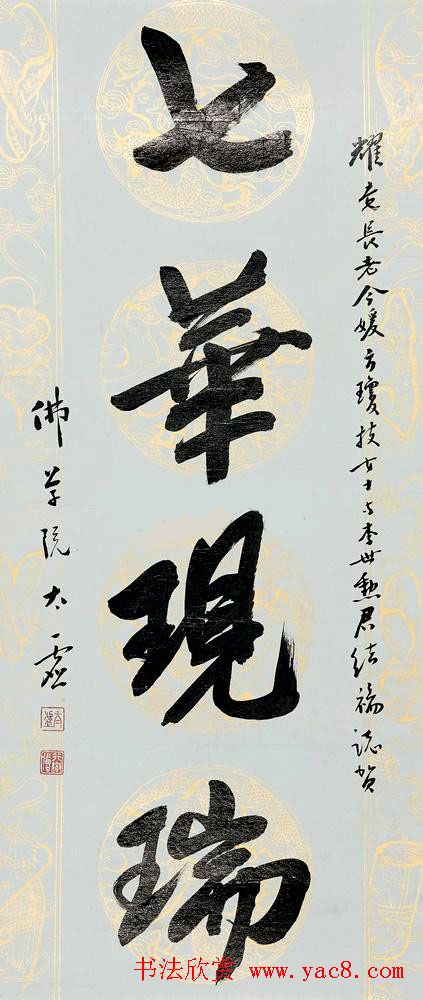 耀竞長老令媛方瓊枝女士与李世勲君結褵誌賀
七華現瑞
佛学院太虚
书法欣赏 www.yac8.com